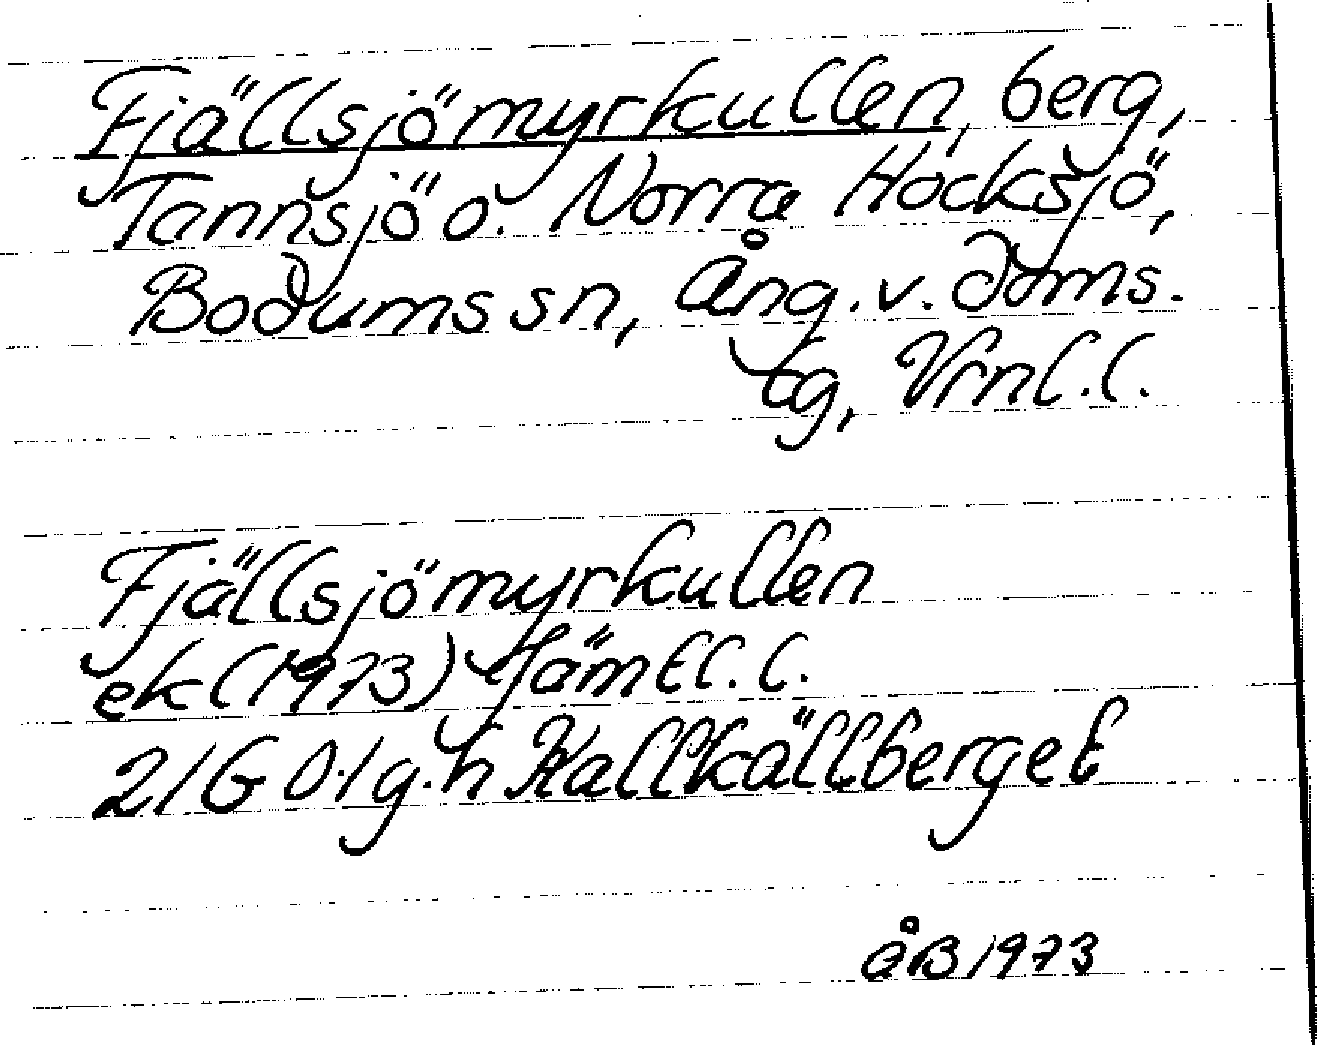 Fjällsjömyrkullen, berg,
Tannsjö o. Norra Höcksjö,
Bodums sn, Ång. v. Doms.
tg, Vrnl. l.
Fjällsjömyrkullen
ek (1973) Jämtl. l.
21G 0-1g-h Kallkällberget
åB 1973